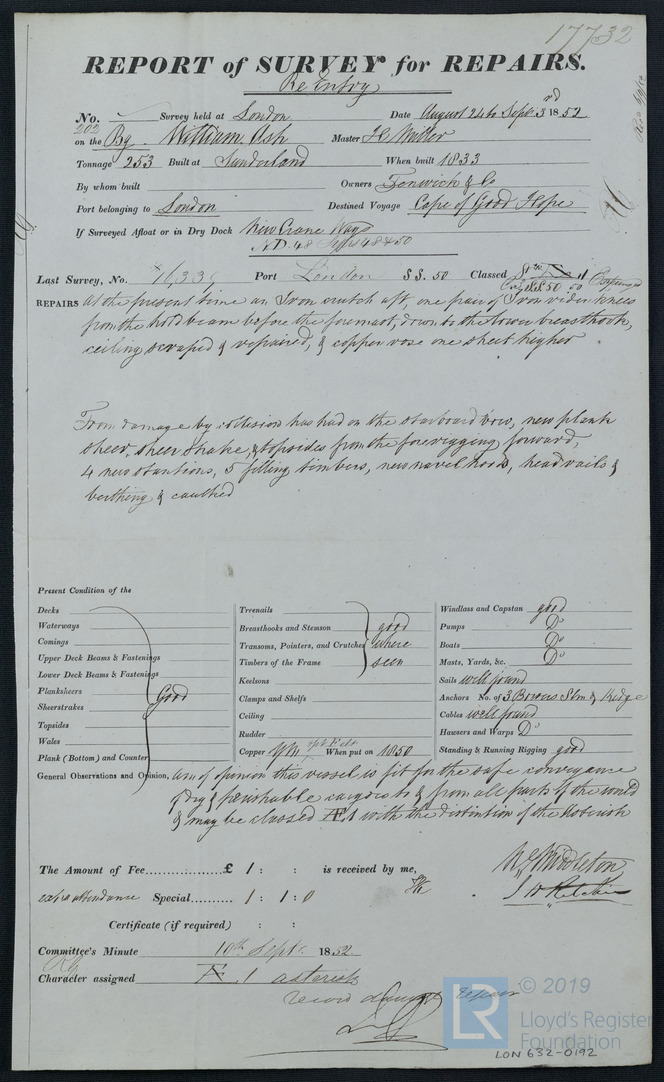 17732
REPORT of SURVEY for REPAIRS.
Re Entry
No. Survey held at London Date August 24 to Sept. 3rd 1852
202 on the Bg. William Ash Master H Miller
Tonnage 253 Built at Sunderland When built 1833
By whom built Owners Fenwick & Co
Port belonging to London Destined Voyage Cape of Good Hope
If Surveyed Afloat or in Dry Dock New Crane Ways
Last Survey, No. Port London SS. 50 Classed
REPAIRS at the present time an Iron crutch aft, one pair of Iron rider knees
from the hold beam before the foremast, down to the lower breasthook,
ceiling scraped & repaired, & copper rose one sheet higher
From damage by collision has had on the starboard bow, new plank
sheer, sheer strake, & topsides from the forerigging forward,
4 new stantions, 5 filling timbers, new navel hood, headrails &
berthing & caulked
Present Condition of the
Decks
Waterways
Comings
Upper Deck Beams & Fastenings
Lower Deck Beams & Fastenings
Planksheers Good
Sheerstrakes
Topsides
Wales
Plank (Bottom) and Counter
Treenails
Breasthooks and Stemson good
Transoms, Pointers, and Crutches where
Timbers of the Frame seen
Keelsons
Clamps and Shelfs
Ceiling
Rudder
Copper YM over Felt When put on 1850
Windlass and Capstan good
Pumps Do
Boats Do
Masts, Yards, &c. Do
Sails well found
Anchors No. of 3 Bowers Strm & Kedge
Cables well found
Hawsers and Warps Do
Standing & Running Rigging good
General Observations and Opinion, am of opinion this vessel is fit for the safe conveyance
of dry & perishable cargoes to & from all parts of the world
& may be classed Æ 1 with the distinction of the Asterisk
The Amount of Fee £ 1 : : is received by me,
extra attendance Special 1 : 1 : 0
Certificate (if required) : :
W Middleton
Committee's Minute 10th Sept. 1852
Character assigned Æ 1 asterisk
record damage repair
LR © 2019
Lloyd's Register
Foundation
LON 632-0192